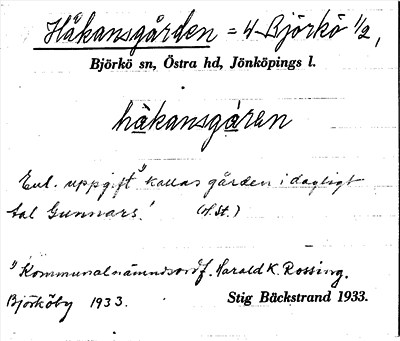 Håkansgården = 4 Björkö 1/2,
Björkö sn, Östra hd, Jönköpings l.
håkansgåren
Enl. uppgift" kallas gården i dagligt
tal Gunnars! (H.St.)
" Kommunalnämndsordf. Harald K. Rossing.
Björköby 1933.
Stig Bäckstrand 1933.